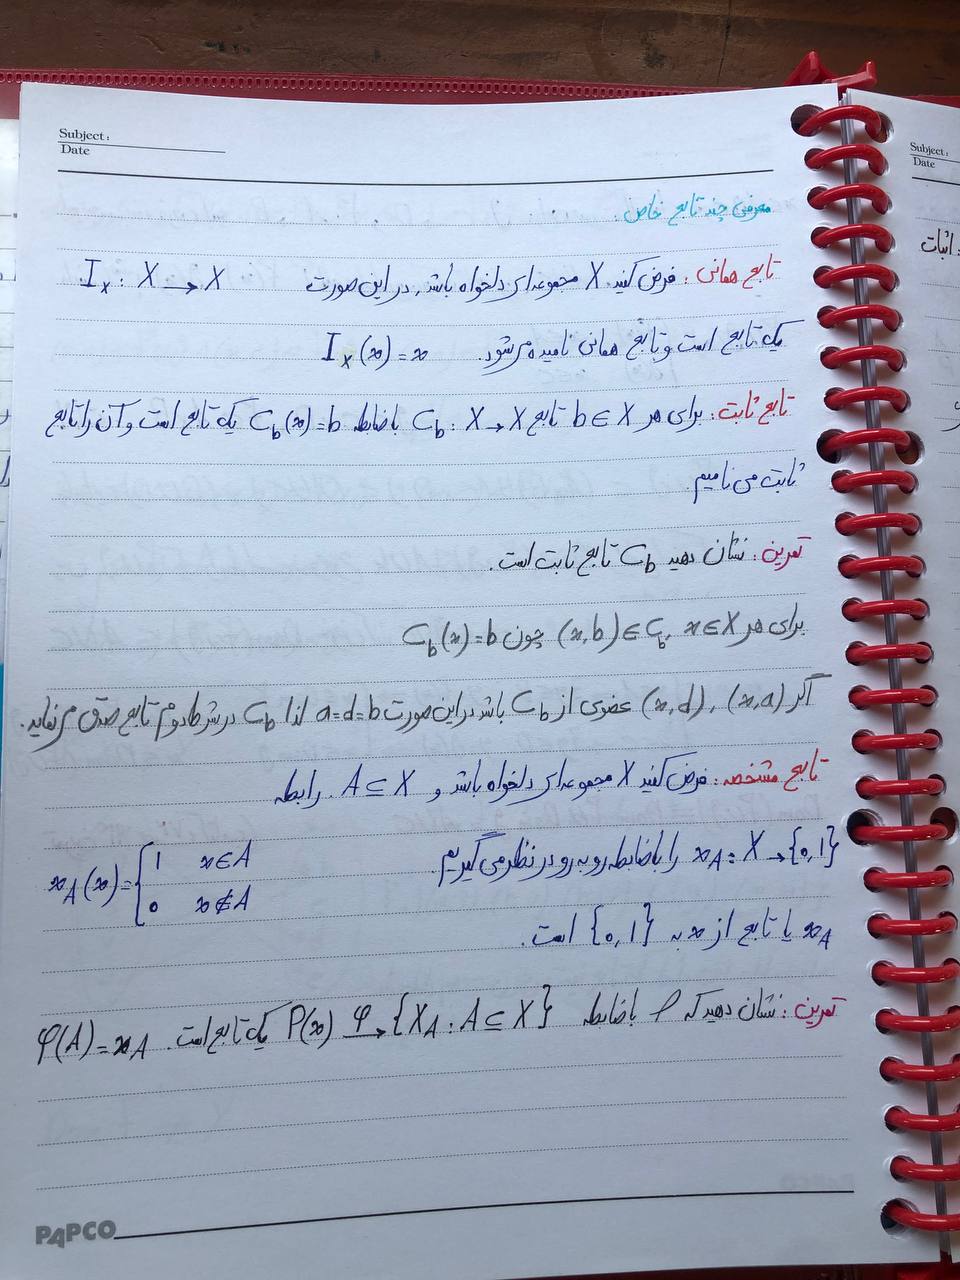 Subject:
Date
معرفی چند تابع خاص.
تابع همانی: فرض کنید X مجموعه‌ای دلخواه باشد, در این صورت I_x : X → X
یک تابع است و تابع همانی نامیده می‌شود. I_x (x) = x
تابع ثابت: برای هر b ∈ X تابع C_b : X → X با ضابطه C_b(x) = b یک تابع است و آن را تابع
ثابت می نامیم.
تمرین: نشان دهید C_b تابع ثابت است.
برای هر x ∈ X, (x,b) ∈ C_b چون C_b(x) = b
اگر (x,a), (x,d) عضوی از C_b باشد در این صورت a=d=b لذا C_b در شرط دوم تابع صدق می‌نماید.
تابع مشخصه: فرض کنید X مجموعه‌ای دلخواه باشد و A ⊆ X. رابطه
x_A : X → {0,1} را با ضابطه رو به رو در نظر می گیریم. x_A(x) = { 1 x ∈ A
0 x ∉ A
x_A یا تابع از x به {0,1} است.
تمرین: نشان دهید که φ با ضابطه P(x) →φ {X_A : A ⊆ X} یک تابع است. φ(A) = x_A
PAPCO
Subject:
Date
: اثبات